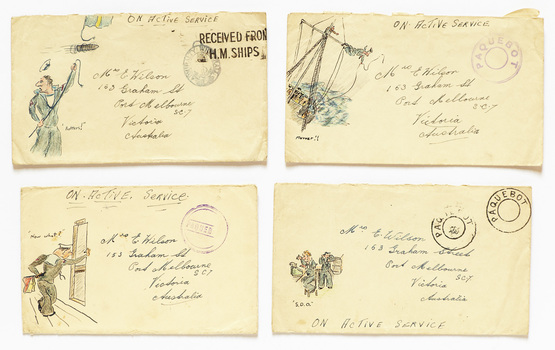 ON ACTIVE SERVICE
RECEIVED FROM
H.M. SHIPS
Mrs E Wilson
163 Graham St
Port Melbourne
SC7
Victoria
Australia
ON-ACTIVE SERVICE
PAQUEBOT
Mrs E Wilson
163 Graham St
Port Melbourne
SC7
Victoria
Australia
ON-ACTIVE. SERVICE
"Now what?"
Mrs E. Wilson.
163 Graham St
Port Melbourne
SC7
Victoria
Australia
PAQUEBOT
PAQUEBOT
Mrs E. Wilson
163 Graham Street
Port Melbourne
SC7
Victoria
Australia
"S.D.O."
ON ACTIVE SERVICE